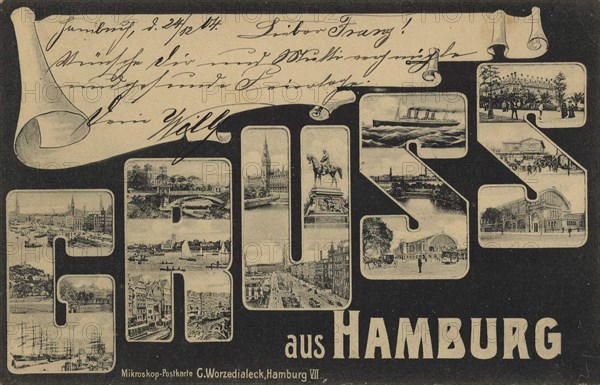 Hamburg, d. 24/12 04. Lieber Franz!
Wünsche Dir und Mutti recht
und gesunde Feiertage.
Dein Willy
GRUSS
aus HAMBURG
Mikroskop-Postkarte C. Worzedialeck, Hamburg VII.